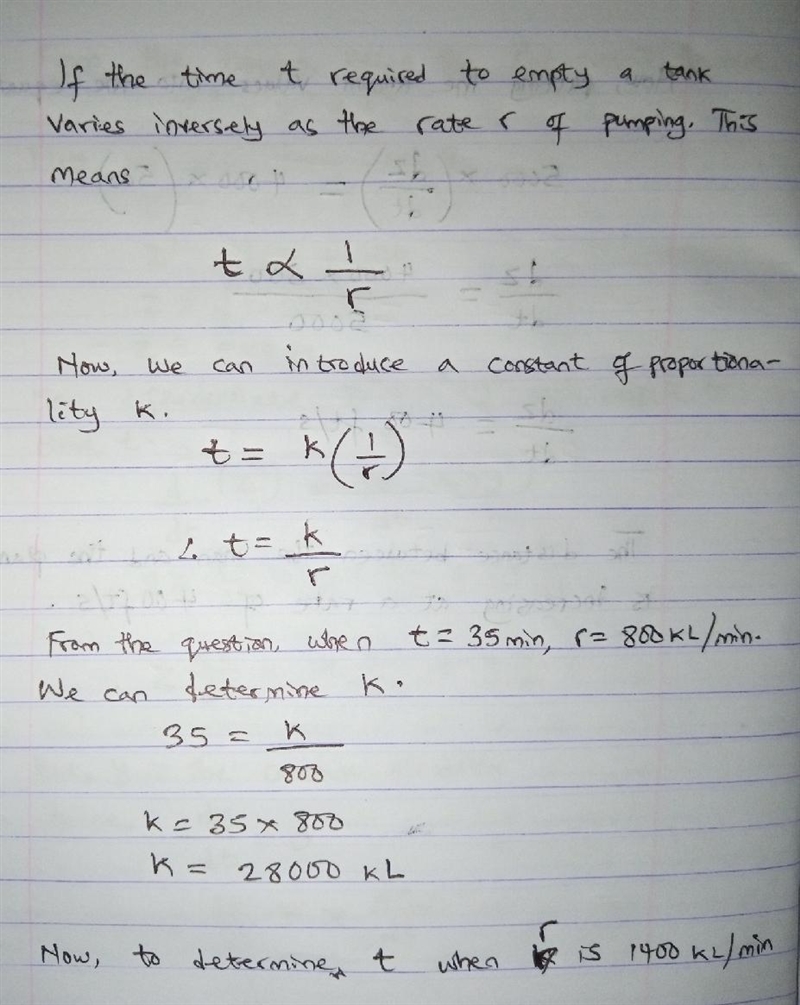 If the time t required to empty a tank
varies inversely as the rate r of pumping. This
means
t ∝ 1/r
Now, we can introduce a constant of proportiona-
lity k.
t = k(1/r)
∴ t = k/r
From the question, when t = 35 min, r = 800 KL/min.
We can determine k.
35 = k/800
k = 35 × 800
k = 28000 kL
Now, to determine, t when r is 1400 KL/min